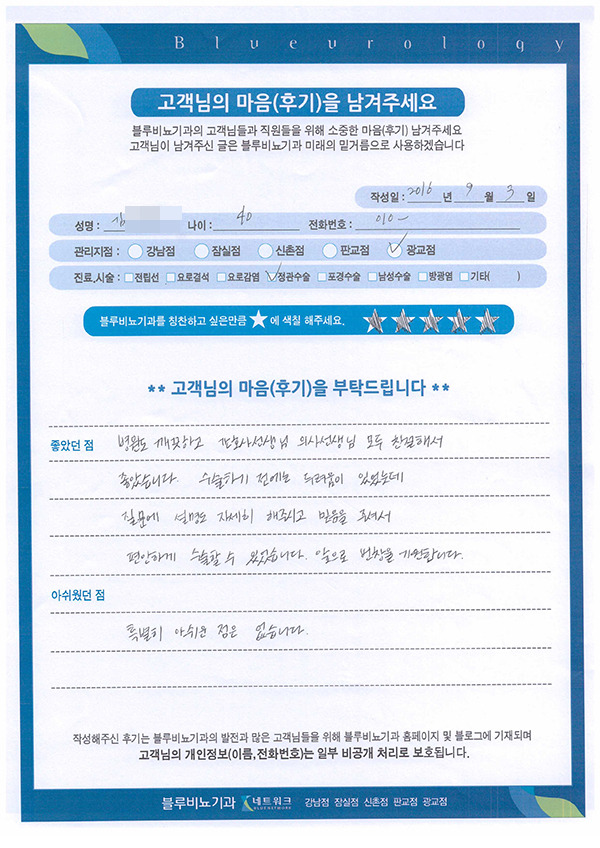 Blueurology
고객님의 마음(후기)을 남겨주세요
블루비뇨기과의 고객님들과 직원들을 위해 소중한 마음(후기) 남겨주세요
고객님이 남겨주신 글은 블루비뇨기과 미래의 밑거름으로 사용하겠습니다
작성일 : 2016 년 9 월 3 일
성명 : 김 나이 : 40 전화번호 : 010-
관리지점 : 강남점 잠실점 신촌점 판교점 광교점
진료,시술 : 전립선 요로결석 요로감염 정관수술 포경수술 남성수술 방광염 기타( )
블루비뇨기과를 칭찬하고 싶은만큼 ★에 색칠 해주세요. ★★★★★
** 고객님의 마음(후기)을 부탁드립니다 **
좋았던 점 병원도 깨끗하고 간호사선생님 의사선생님 모두 친절해서
좋았습니다. 수술하기 전에는 두려움이 있었는데
질문에 설명도 자세히 해주시고 믿음을 주셔서
편안하게 수술할 수 있었습니다. 앞으로 번창을 기원합니다.
아쉬웠던 점
특별히 아쉬운 점은 없습니다.
작성해주신 후기는 블루비뇨기과의 발전과 많은 고객님들을 위해 블루비뇨기과 홈페이지 및 블로그에 기재되며
고객님의 개인정보(이름,전화번호)는 일부 비공개 처리로 보호됩니다.
블루비뇨기과 네트워크 BLUE NETWORK 강남점 잠실점 신촌점 판교점 광교점